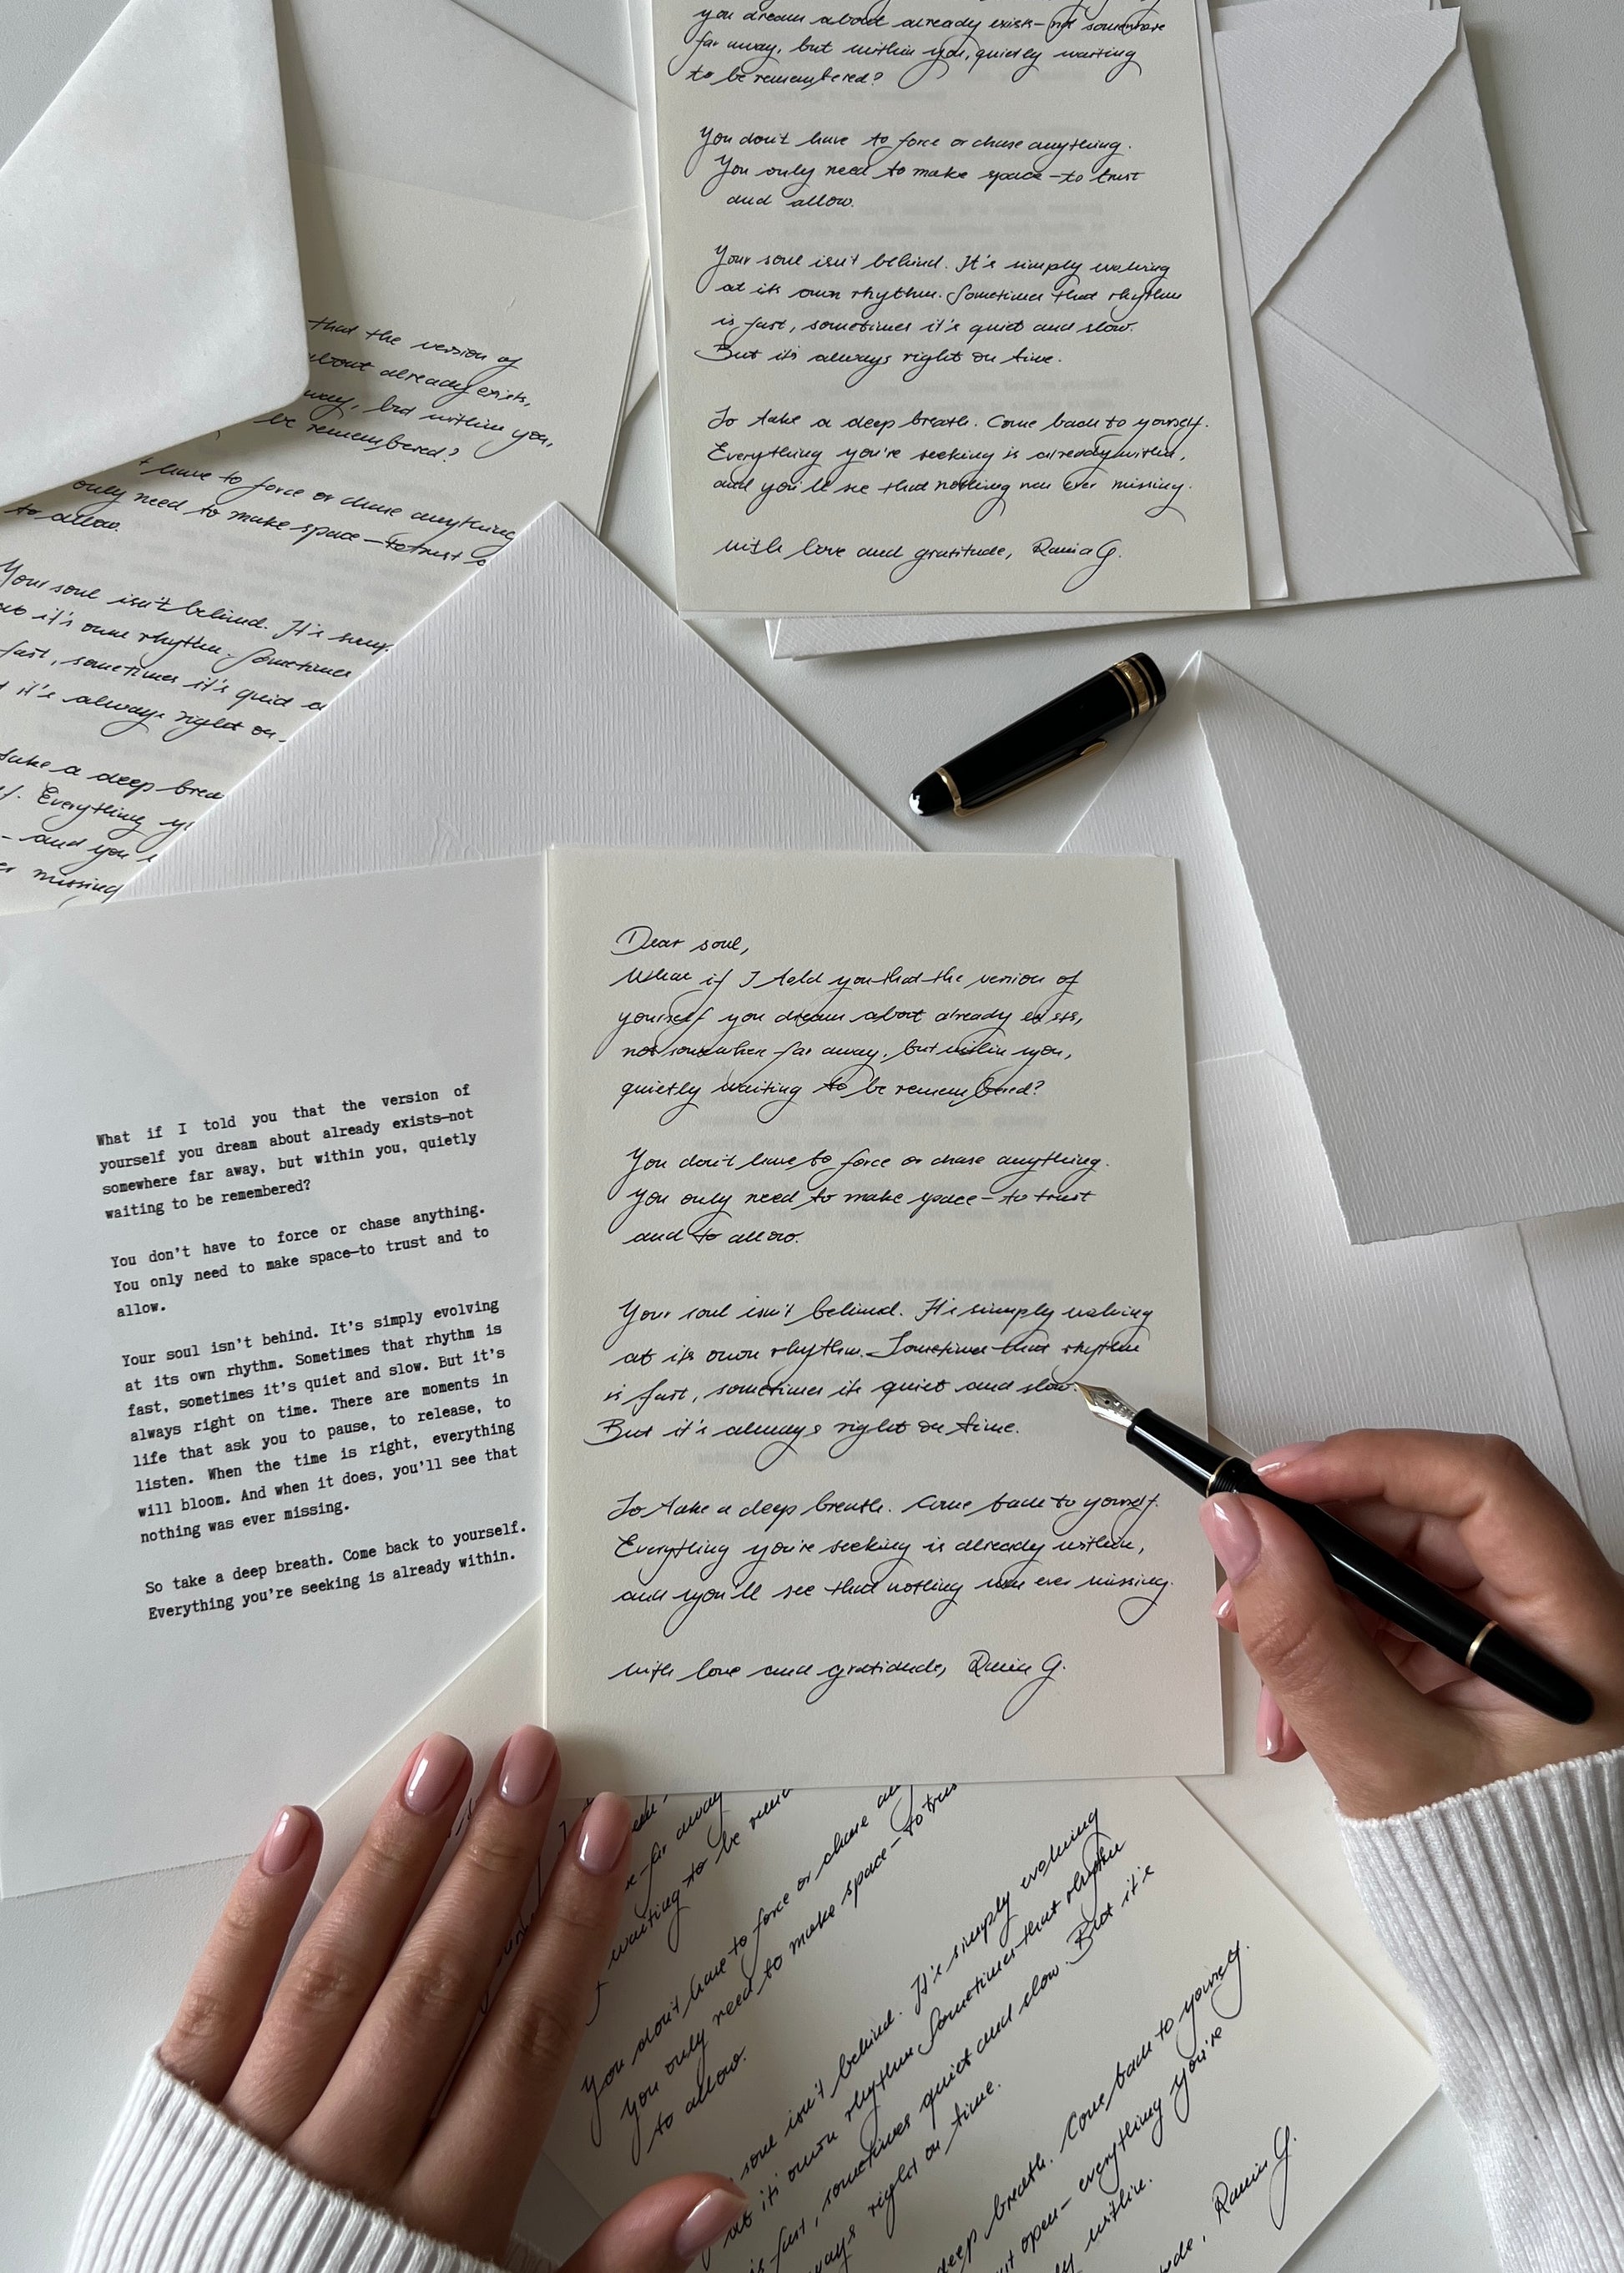 you dream about already exist—not somewhere
far away, but within you, quietly waiting
to be remembered?
You don't have to force or chase anything.
You only need to make space—to trust
and allow.
Your soul isn't behind. It's simply evolving
at its own rhythm. Sometimes that rhythm
is fast, sometimes it's quiet and slow.
But it's always right on time.
So take a deep breath. Come back to yourself.
Everything you're seeking is already within,
and you'll see that nothing was ever missing.
with love and gratitude, Rania G.
that the version of
about already exists,
way, but within you,
be remembered?
have to force or chase anything
only need to make space—to trust
to allow.
Your soul isn't behind. It's
it's own rhythm. Sometimes
fast, sometimes it's quiet
it's always right on
take a deep
Everything
and you
missing
What if I told you that the version of
yourself you dream about already exists—not
somewhere far away, but within you, quietly
waiting to be remembered?
You don't have to force or chase anything.
You only need to make space—to trust and to
allow.
Your soul isn't behind. It's simply evolving
at its own rhythm. Sometimes that rhythm is
fast, sometimes it's quiet and slow. But it's
always right on time. There are moments in
life that ask you to pause, to release, to
listen. When the time is right, everything
will bloom. And when it does, you'll see that
nothing was ever missing.
So take a deep breath. Come back to yourself.
Everything you're seeking is already within.
Dear soul,
What if I told you that the version of
yourself you dream about already exists,
not somewhere far away, but within you,
quietly waiting to be remembered?
You don't have to force or chase anything.
You only need to make space—to trust
and to allow.
Your soul isn't behind. It's simply evolving
at its own rhythm. Sometimes that rhythm
is fast, sometimes its quiet and slow.
But it's always right on time.
So take a deep breath. Come back to yourself.
Everything you're seeking is already within,
and you'll see that nothing was ever missing.
with love and gratitude, Rania G.
far away
waiting to be
You don't have to force or chase
you only need to make space—to
to allow.
soul isn't behind. It's simply evolving
at its own rhythm Sometimes that rhythm
is fast, sometimes quiet and slow. But it's
right on time.
deep breath. Come back to yourself.
open—everything you're
within.
Rania G.